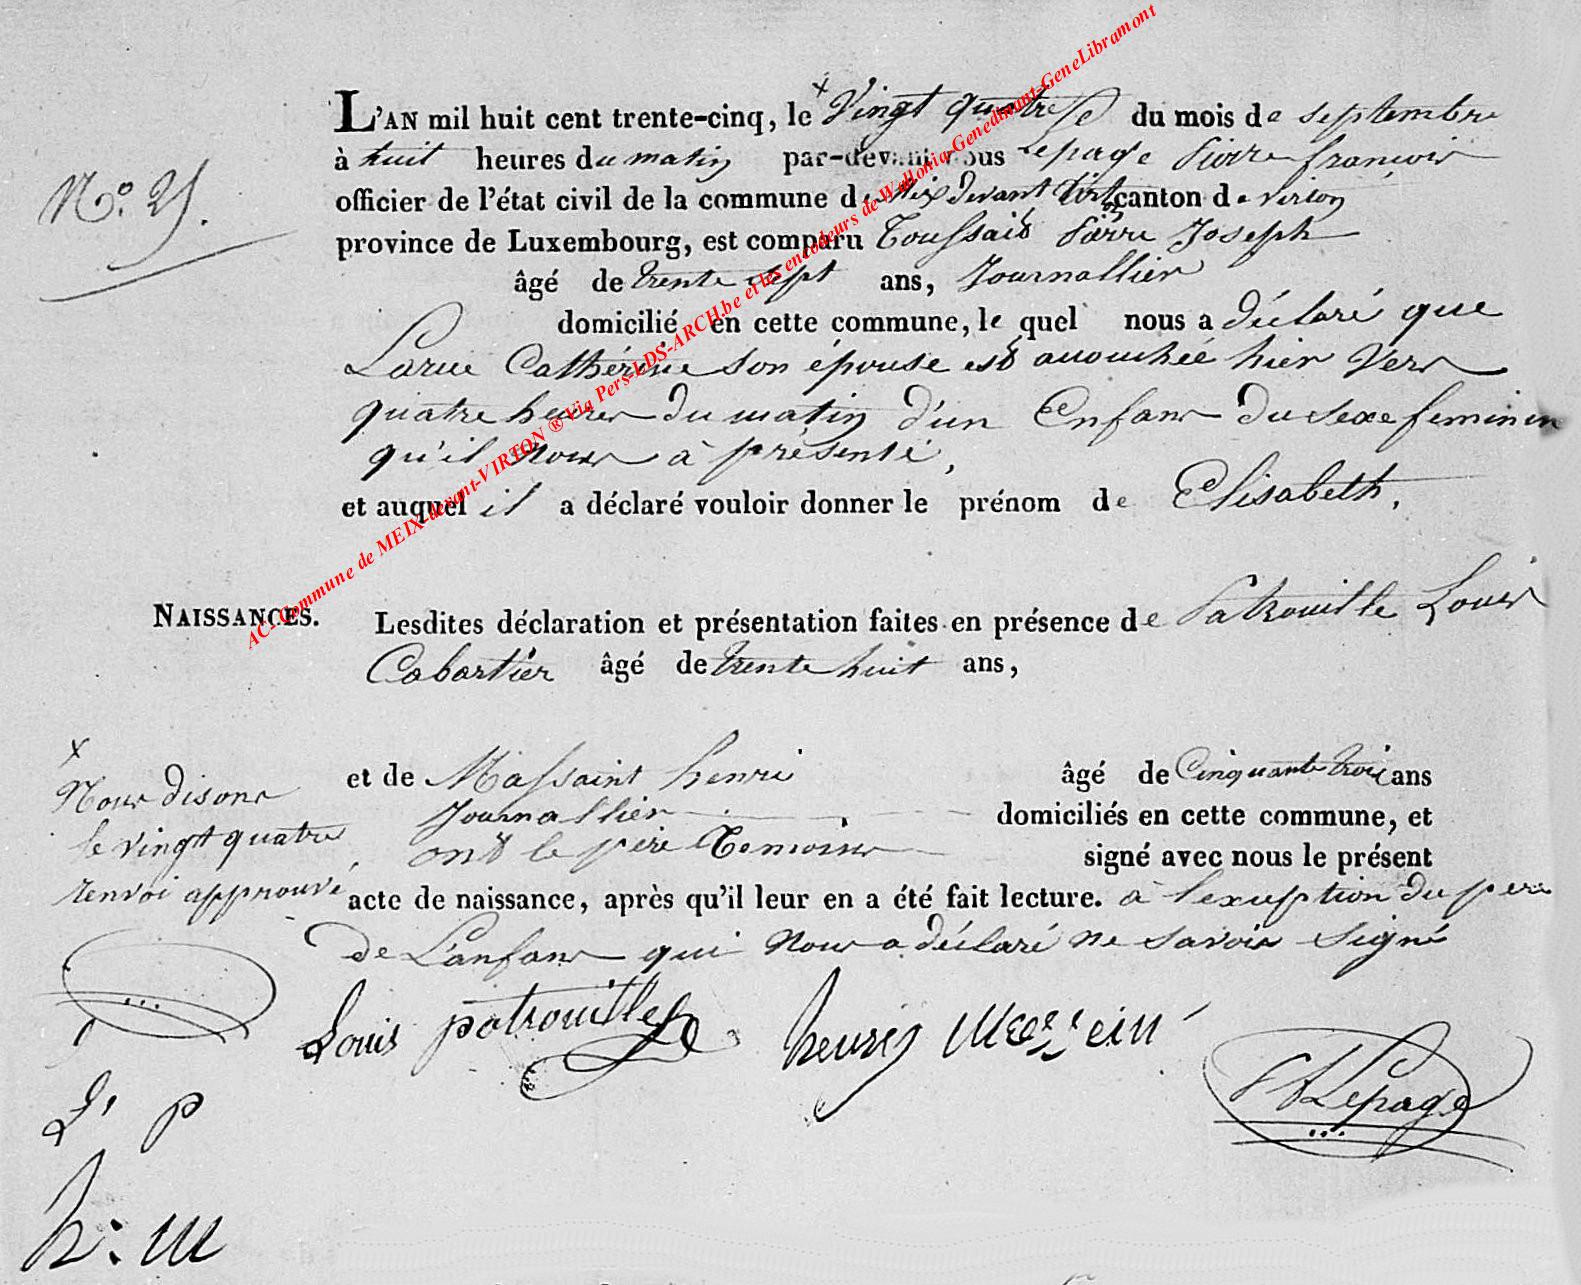 L'AN mil huit cent trente-cinq, le × Vingt quatre du mois de septembre
à huit heures du matin par-devant nous Lepage Pierre françois
officier de l'état civil de la commune de Meix devant Virton canton de virton
N.º 25.
province de Luxembourg, est comparu Toussaint Pierre Joseph
âgé de trente sept ans, Journallier
domicilié en cette commune, le quel nous a déclaré que
Larue Cathérine son épouse est accouchée hier Vers
quatre heures du matin d'un Enfant du sexe feminin
qu'il nous à présenté,
et auquel il a déclaré vouloir donner le prénom de Elisabeth.
NAISSANCES.
Lesdites déclaration et présentation faites en présence de Patrouille Louis
Cabartier âgé de trente huit ans,
et de Massaint henri âgé de Cinquante trois ans
Journallier domiciliés en cette commune, et
ont le père Temoins signé avec nous le présent
acte de naissance, après qu'il leur en a été fait lecture. à l'exception du père
de L'anfant qui nous a déclaré ne savoir signé
×
Nous disons
le vingt quatre
renvoi approuvé
Louis patrouille henri
Lepage
L p
h : m
AC- Commune de MEIX devant-VIRTON ® Via Pers-LDS-ARCH.be et les encodeurs de Wallonia-Genedinant-GeneLibramont